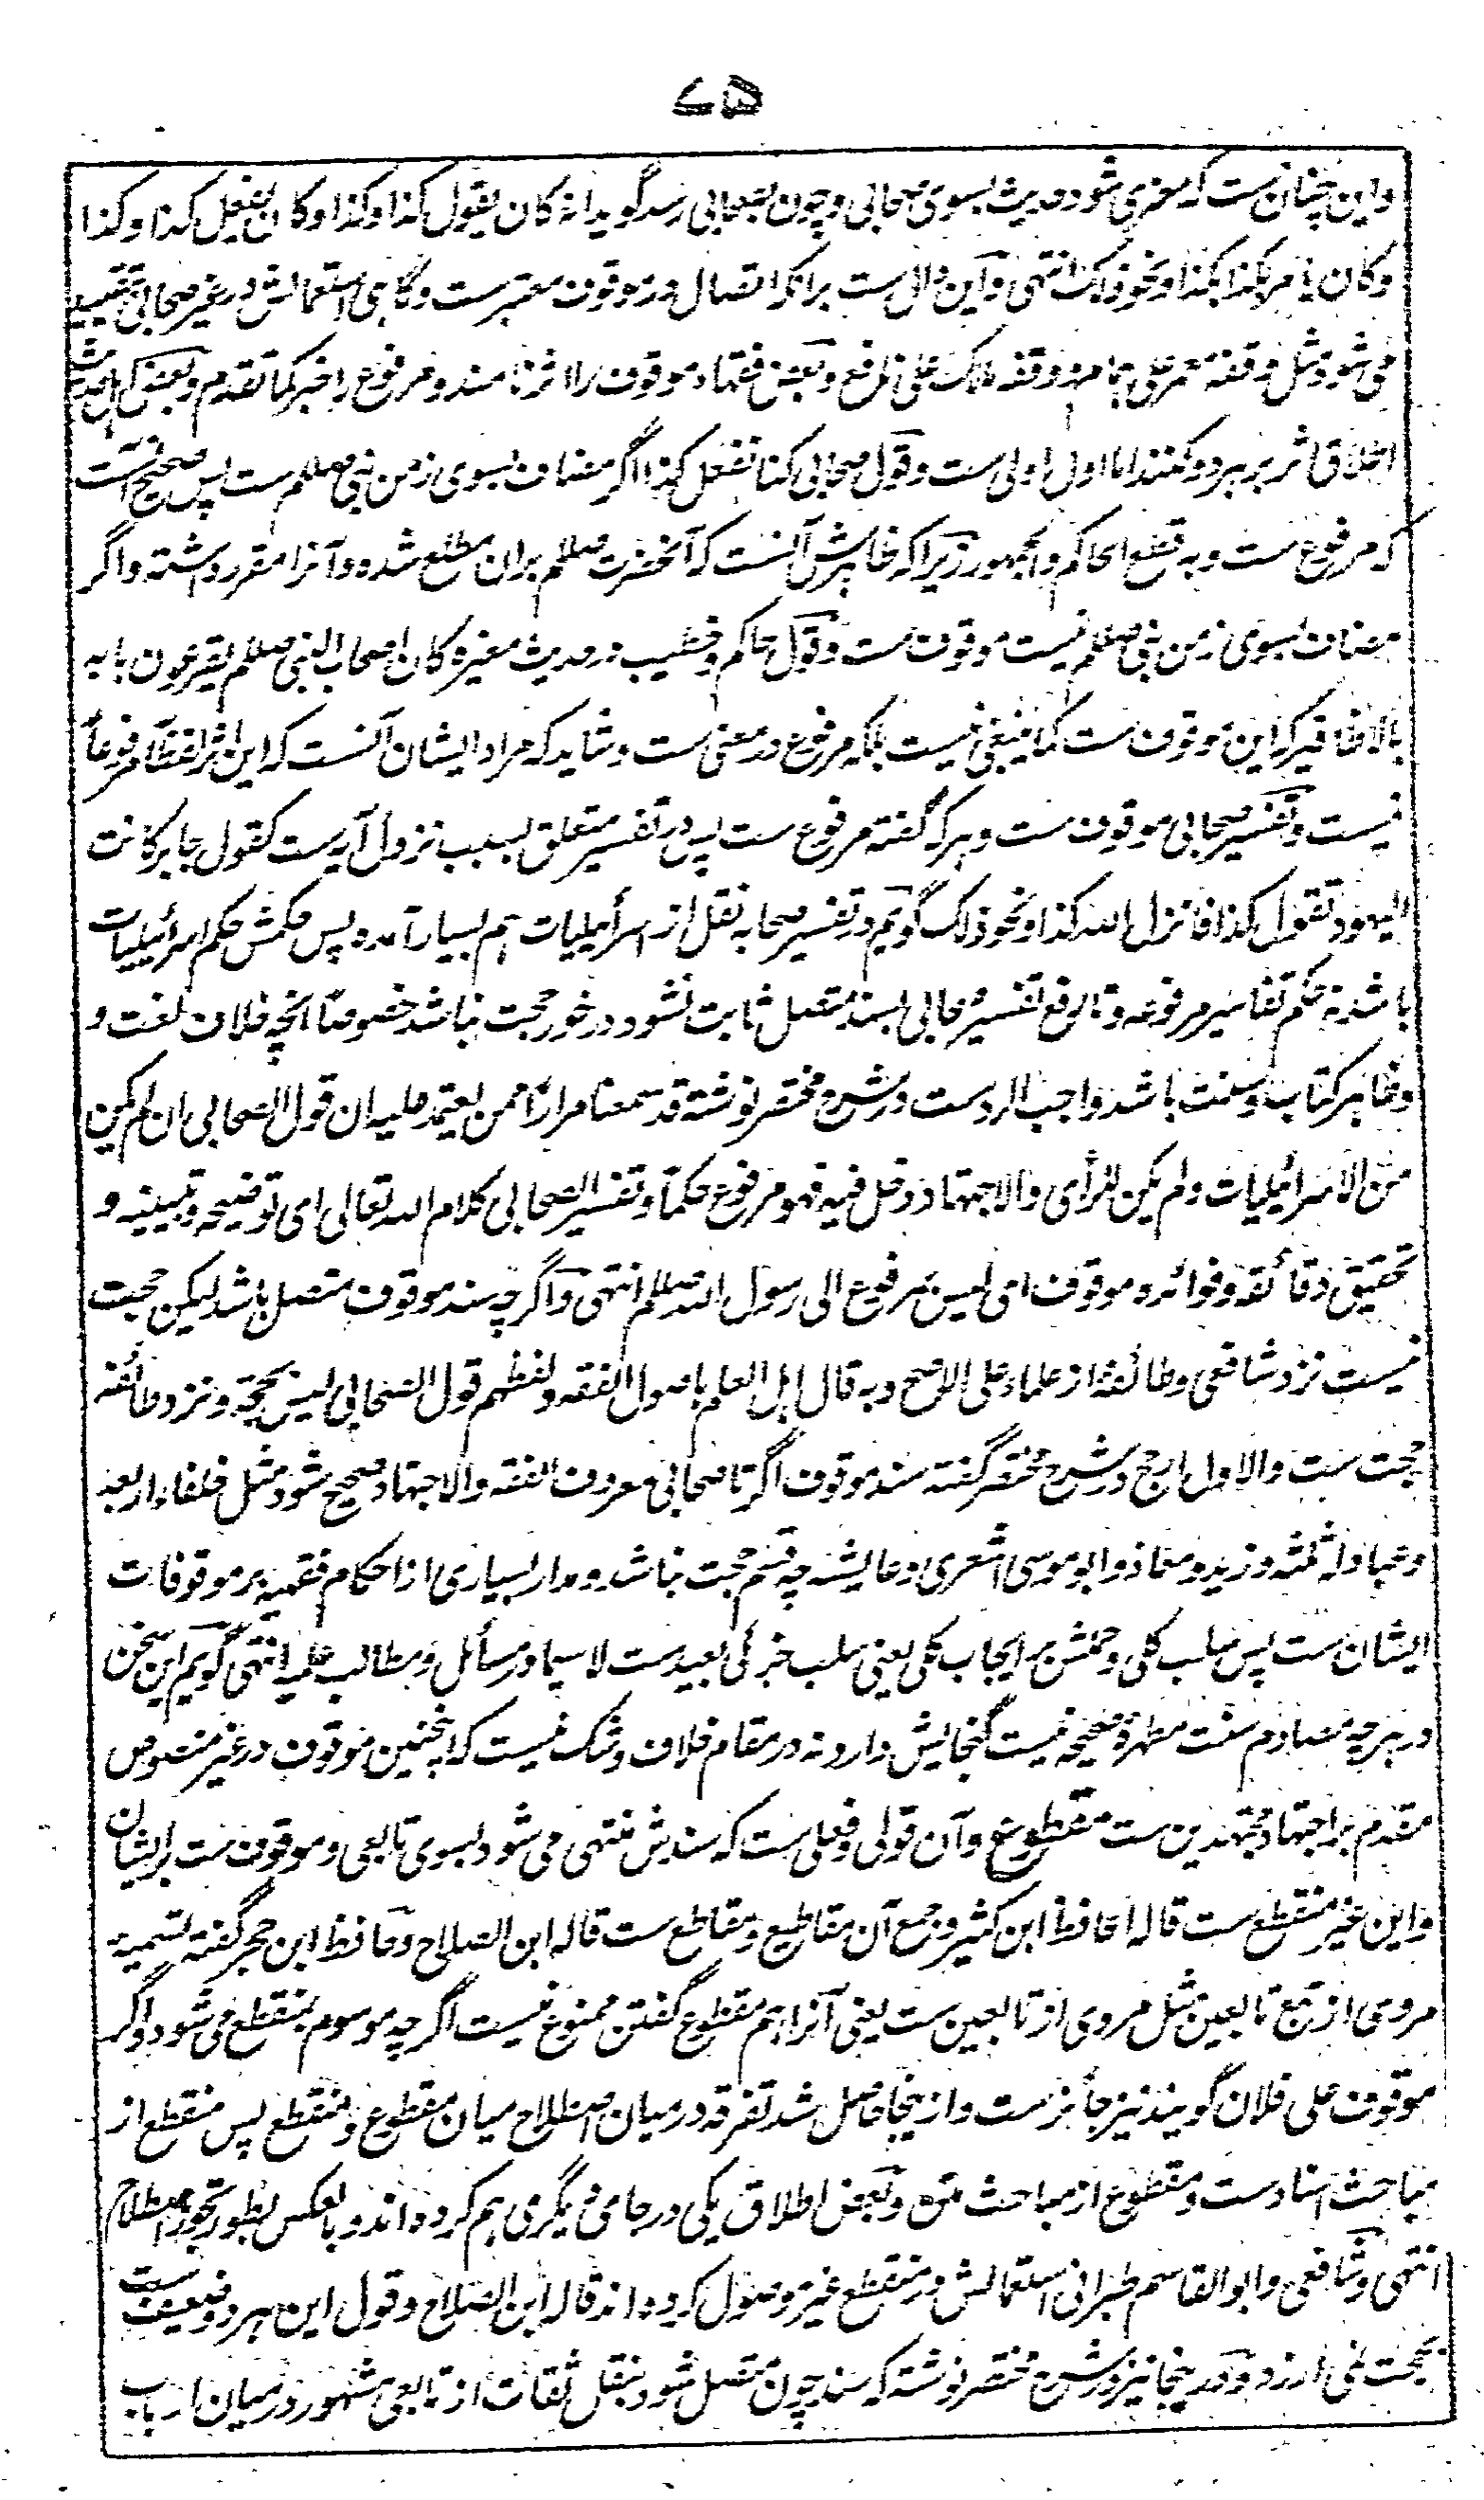 ۷۵
واین چنان ست که معزی شود حدیث بسوی صحابی و چون بصحابی رسد گوید انه کان یقول کذا وکذا وکان یفعل کذا وکذا
وکان یامر بکذا وکذا ونحو ذلک انتهی و این دال ست برانکه اتصال در موقوف معتبر ست و گاهی استعمالش در غیر صحابی بتقیید
می شود مثل وقفه معمر علی همام و وقفه مالک علی نافع و بعض فقهاء موقوف را اثر نامند و مرفوع را خبر کما تقدم و بعض اهل حدیث
اطلاق اثر بر هر دو کنند اما اول اولی ست و قول صحابی کنا نفعل کذا اگر مضاف بسوی زمن نبی صلعم ست پس صحیح آنست
که مرفوع ست و به قطع الحاکم والجمهور زیرا که ظاهرش آنست که آنحضرت صلعم بران مطلع شده و آنرا مقرر داشته و اگر
مضاف بسوی زمن نبی صلعم نیست موقوف ست و قول حاکم و خطیب در حدیث مغیره کان اصحاب النبی صلعم یقرعون بابه
بالاظافیر که این موقوف ست کما ینبغی نیست بلکه مرفوع در معنی ست و شاید که مراد ایشان آنست که این اثر لفظا مرفوعا
نیست و تفسیر صحابی موقوف ست و هر که گفته مرفوع ست پس در تفسیر متعلق بسبب نزول آیه ست کقول جابر کانت
الیهود تقول کذا فانزل الله کذا ونحو ذلک گویم در تفسیر صحابه نقل از اسرائیلیات هم بسیار آمده پس حکمش حکم اسرائیلیات
باشد نه حکم تفاسیر مرفوعه و تا رفع تفسیر صحابی بسند متصل ثابت نشود درخور حجت نباشد خصوصا آنچه خلاف لغت و
وظاهر کتاب و سنت باشد واجب الرد ست در شرح مختصر نوشته قد سمعنا مرارا ممن یعتمد علیه ان قول الصحابی ان لم یکن
من الاسرائیلیات ولم یکن للرأی والاجتهاد دخل فیه فهو مرفوع حکما وتفسیر الصحابی کلام الله تعالی ای توضیحه وتبیینه و
تحقیق دقائقه وفوائده موقوف ای لیس بمرفوع الی رسول الله صلعم انتهی و اگرچه سند موقوف متصل باشد لیکن حجت
نیست نزد شافعی و طائفه از علماء علی الاصح وبه قال اهل العلم باصول الفقه ولفظهم قول الصحابی لیس بحجة و نزد طائفه
حجت ست والاول ارجح در شرح مختصر گفته سند موقوف اگر تا صحابی معروف الفقه والاجتهاد صحیح شود مثل خلفاء اربعه
وعبادله ثلثه و زید و معاذ و ابو موسی اشعری و عایشه چه قسم حجت نباشد و مدار بسیاری از احکام فقهیه بر موقوفات
ایشان ست پس سلب کلی و حملش بر ایجاب کلی یعنی سلب جزئی بعید ست لاسیما در مسائل و مطالب علیه انتهی گویم این سخن
در هرچه مصادم سنت مطهره صحیحه نیست گنجایش دارد نه در مقام خلاف و شک نیست که اینچنین موقوف در غیر منصوص
مقدم بر اجتهاد مجتهدین ست مقطوع و آن قولی و فعلی ست که سندش منتهی می شود بسوی تابعی و موقوف ست برایشان
واین غیر منقطع ست قاله الحافظ ابن کثیر و جمع آن مقاطیع و مقاطع ست قاله ابن الصلاح و حافظ ابن حجر گفته تسمیه
مروی از تبع تابعین مثل مروی از تابعین ست یعنی آنرا هم مقطوع گفتن ممنوع نیست اگرچه موسوم بمنقطع می شود و اگر
موقوف علی فلان گویند نیز جائز ست و ازینجا حاصل شد تفرقه در میان اصطلاح میان مقطوع و منقطع پس منقطع از
مباحث اسناد ست و مقطوع از مباحث متن و بعض اطلاق یکی در جای دیگری هم کرده اند و بالعکس بطور تجوز اصطلاح
انتهی و شافعی و ابو القاسم طبرانی استعمالش در منقطع غیر موصول کرده اند قاله ابن الصلاح و قول این هر دو ضعیف ست
بحجت نمی ارزد و درینجا نیز در شرح مختصر نوشته که سند چون متصل شود بنقل ثقات از تابعی مشهور در میان ارباب